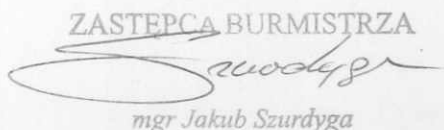 ZASTĘPCA BURMISTRZA
Szurdyga
mgr Jakub Szurdyga